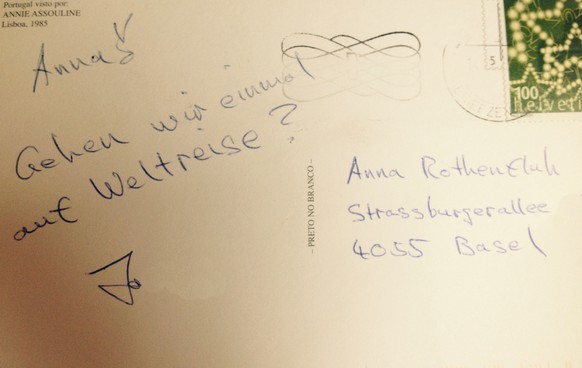 Portugal visto por:
ANNIE ASSOULINE
Lisboa, 1985
Anna
Gehen wir einmal
auf Weltreise?
– PRETO NO BRANCO –
5
100
Helvet
Anna Rothenfluh
Strassburgerallee
4055 Basel